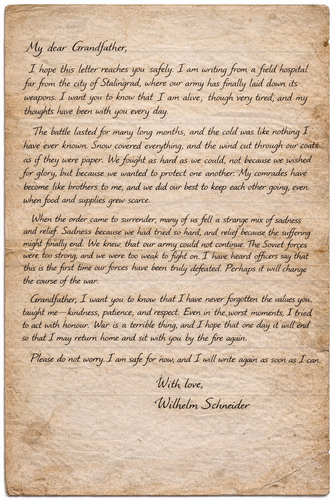 My dear Grandfather,
I hope this letter reaches you safely. I am writing from a field hospital
far from the city of Stalingrad, where our army has finally laid down its
weapons. I want you to know that I am alive, though very tired, and my
thoughts have been with you every day.
The battle lasted for many long months, and the cold was like nothing I
have ever known. Snow covered everything, and the wind cut through our coats
as if they were paper. We fought as hard as we could, not because we wished
for glory, but because we wanted to protect one another. My comrades have
become like brothers to me, and we did our best to keep each other going, even
when food and supplies grew scarce.
When the order came to surrender, many of us fell a strange mix of sadness
and relief. Sadness because we had tried so hard, and relief because the suffering
might finally end. We knew that our army could not continue. The Soviet forces
were too strong, and we were too weak to fight on. I have heard officers say that
this is the first time our forces have been truly defeated. Perhaps it will change
the course of the war.
Grandfather, I want you to know that I have never forgotten the values you
taught me—kindness, patience, and respect. Even in the worst moments, I tried
to act with honour. War is a terrible thing, and I hope that one day it will end
so that I may return home and sit with you by the fire again.
Please do not worry. I am safe for now, and I will write again as soon as I can.
With love,
Wilhelm Schneider